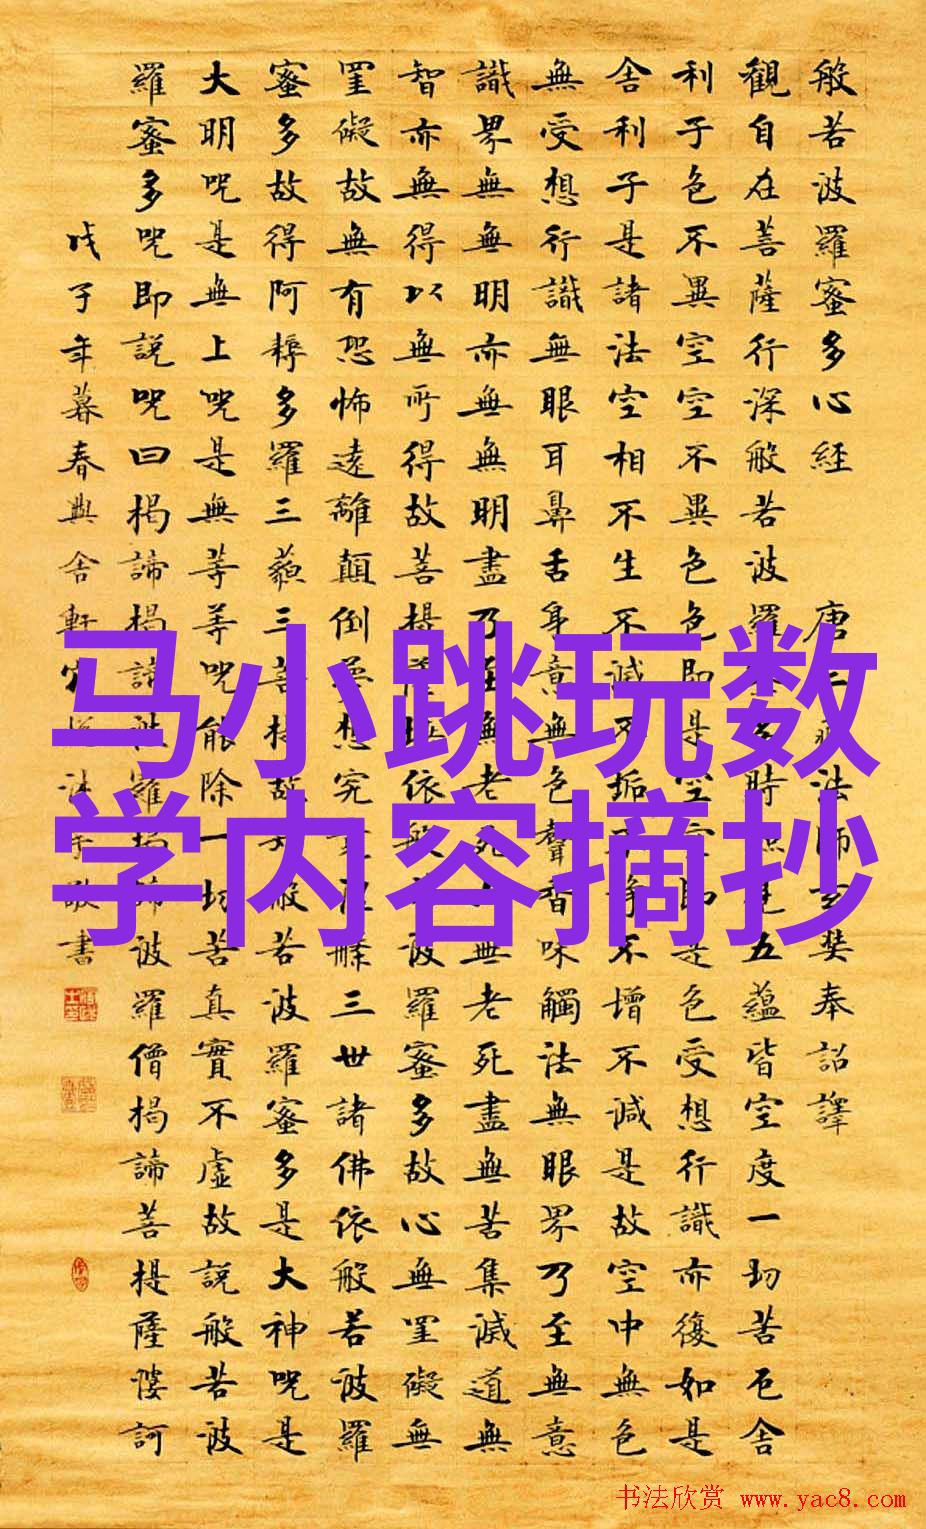 般若波羅蜜多心經 唐三藏法師玄奘奉詔譯
觀自在菩薩行深般若波羅蜜多時照見五蘊皆空度一切苦厄舍
利子色不異空空不異色色即是空空即是色受想行識亦復如是
舍利子是諸法空相不生不滅不垢不淨不增不減是故空中無色
無受想行識無眼耳鼻舌身意無色聲香味觸法無眼界乃至無意
識界無無明亦無無明盡乃至無老死亦無老死盡無苦集滅道無
智亦無得以無所得故菩提薩埵依般若波羅蜜多故心無罣礙無
罣礙故無有恐怖遠離顛倒夢想究竟涅槃三世諸佛依般若波羅
蜜多故得阿耨多羅三藐三菩提故知般若波羅蜜多是大神咒是
大明咒是無上咒是無等等咒能除一切苦真實不虛故說般若波
羅蜜多咒即說咒曰揭諦揭諦波羅揭諦波羅僧揭諦菩提薩婆訶
戊子年暮春興舍軒書
马小跳玩数
学内容摘抄
书法欣赏 www.yac8.com